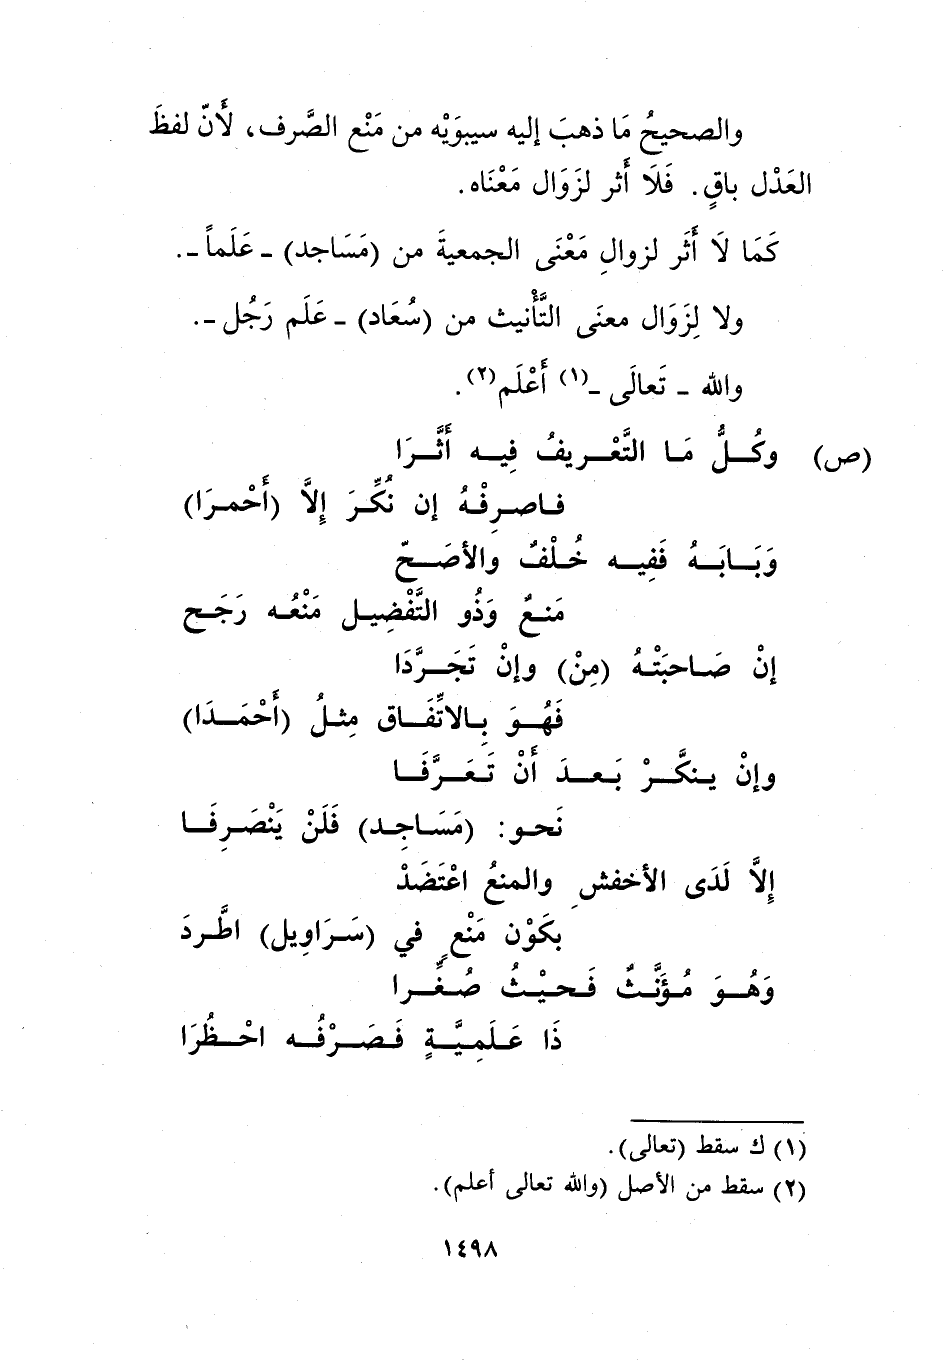 والصحيحُ مَا ذهبَ إليه سيبوَيْه من مَنْع الصَّرف، لأَنّ لفظَ
العَدْل باقٍ. فَلَا أَثر لزَوَال مَعْنَاه.
كَمَا لَا أَثَر لزوالِ مَعْنَى الجمعيةَ من (مَسَاجد) ـ عَلَماً ـ.
ولا لِزَوَال معنَى التَّأْنيث من (سُعَاد) ـ عَلَم رَجُل ـ.
والله ـ تَعالَى ـ(١) أَعْلَم(٢).
(ص) وكُــلُّ مَـا التَّعْــريفُ فِيــه أَثَّــرَا
فـاصـرِفْـهُ إن نُكِّـرَ إلاَّ (أَحْمـرَا)
وَبَــابَــهُ فَفِيــه خُـلْـفٌ والأصَــحّ
مَنـعٌ وَذُو التَّفْضِيــل مَنْعُــه رَجَــح
إنْ صَـاحبَتْـهُ (مِنْ) وإنْ تَجَــرَّدَا
فَهُــوَ بِـالاتِّفَــاق مِثـلُ (أَحْمَــدَا)
وإنْ يـنكَّــرْ بَـعــدَ أَنْ تَـعَــرَّفَــا
نَحـو: (مَسَـاجِـد) فَلَنْ يَنْصَـرِفَـا
إلاَّ لَدَى الأخفشِ والمنعُ اعْتَضَدْ
بكَوْن مَنْعٍ في (سَـرَاوِيل) اطَّـردَ
وَهُــوَ مُـؤَنَّــثٌ فَـحيْــثُ صُـغِّــرا
ذَا عَـلَمِيَّــةٍ فَـصَــرْفُــه احْــظُرَا
(١) ك سقط (تعالى).
(٢) سقط من الأصل (والله تعالى أعلم).
١٤٩٨